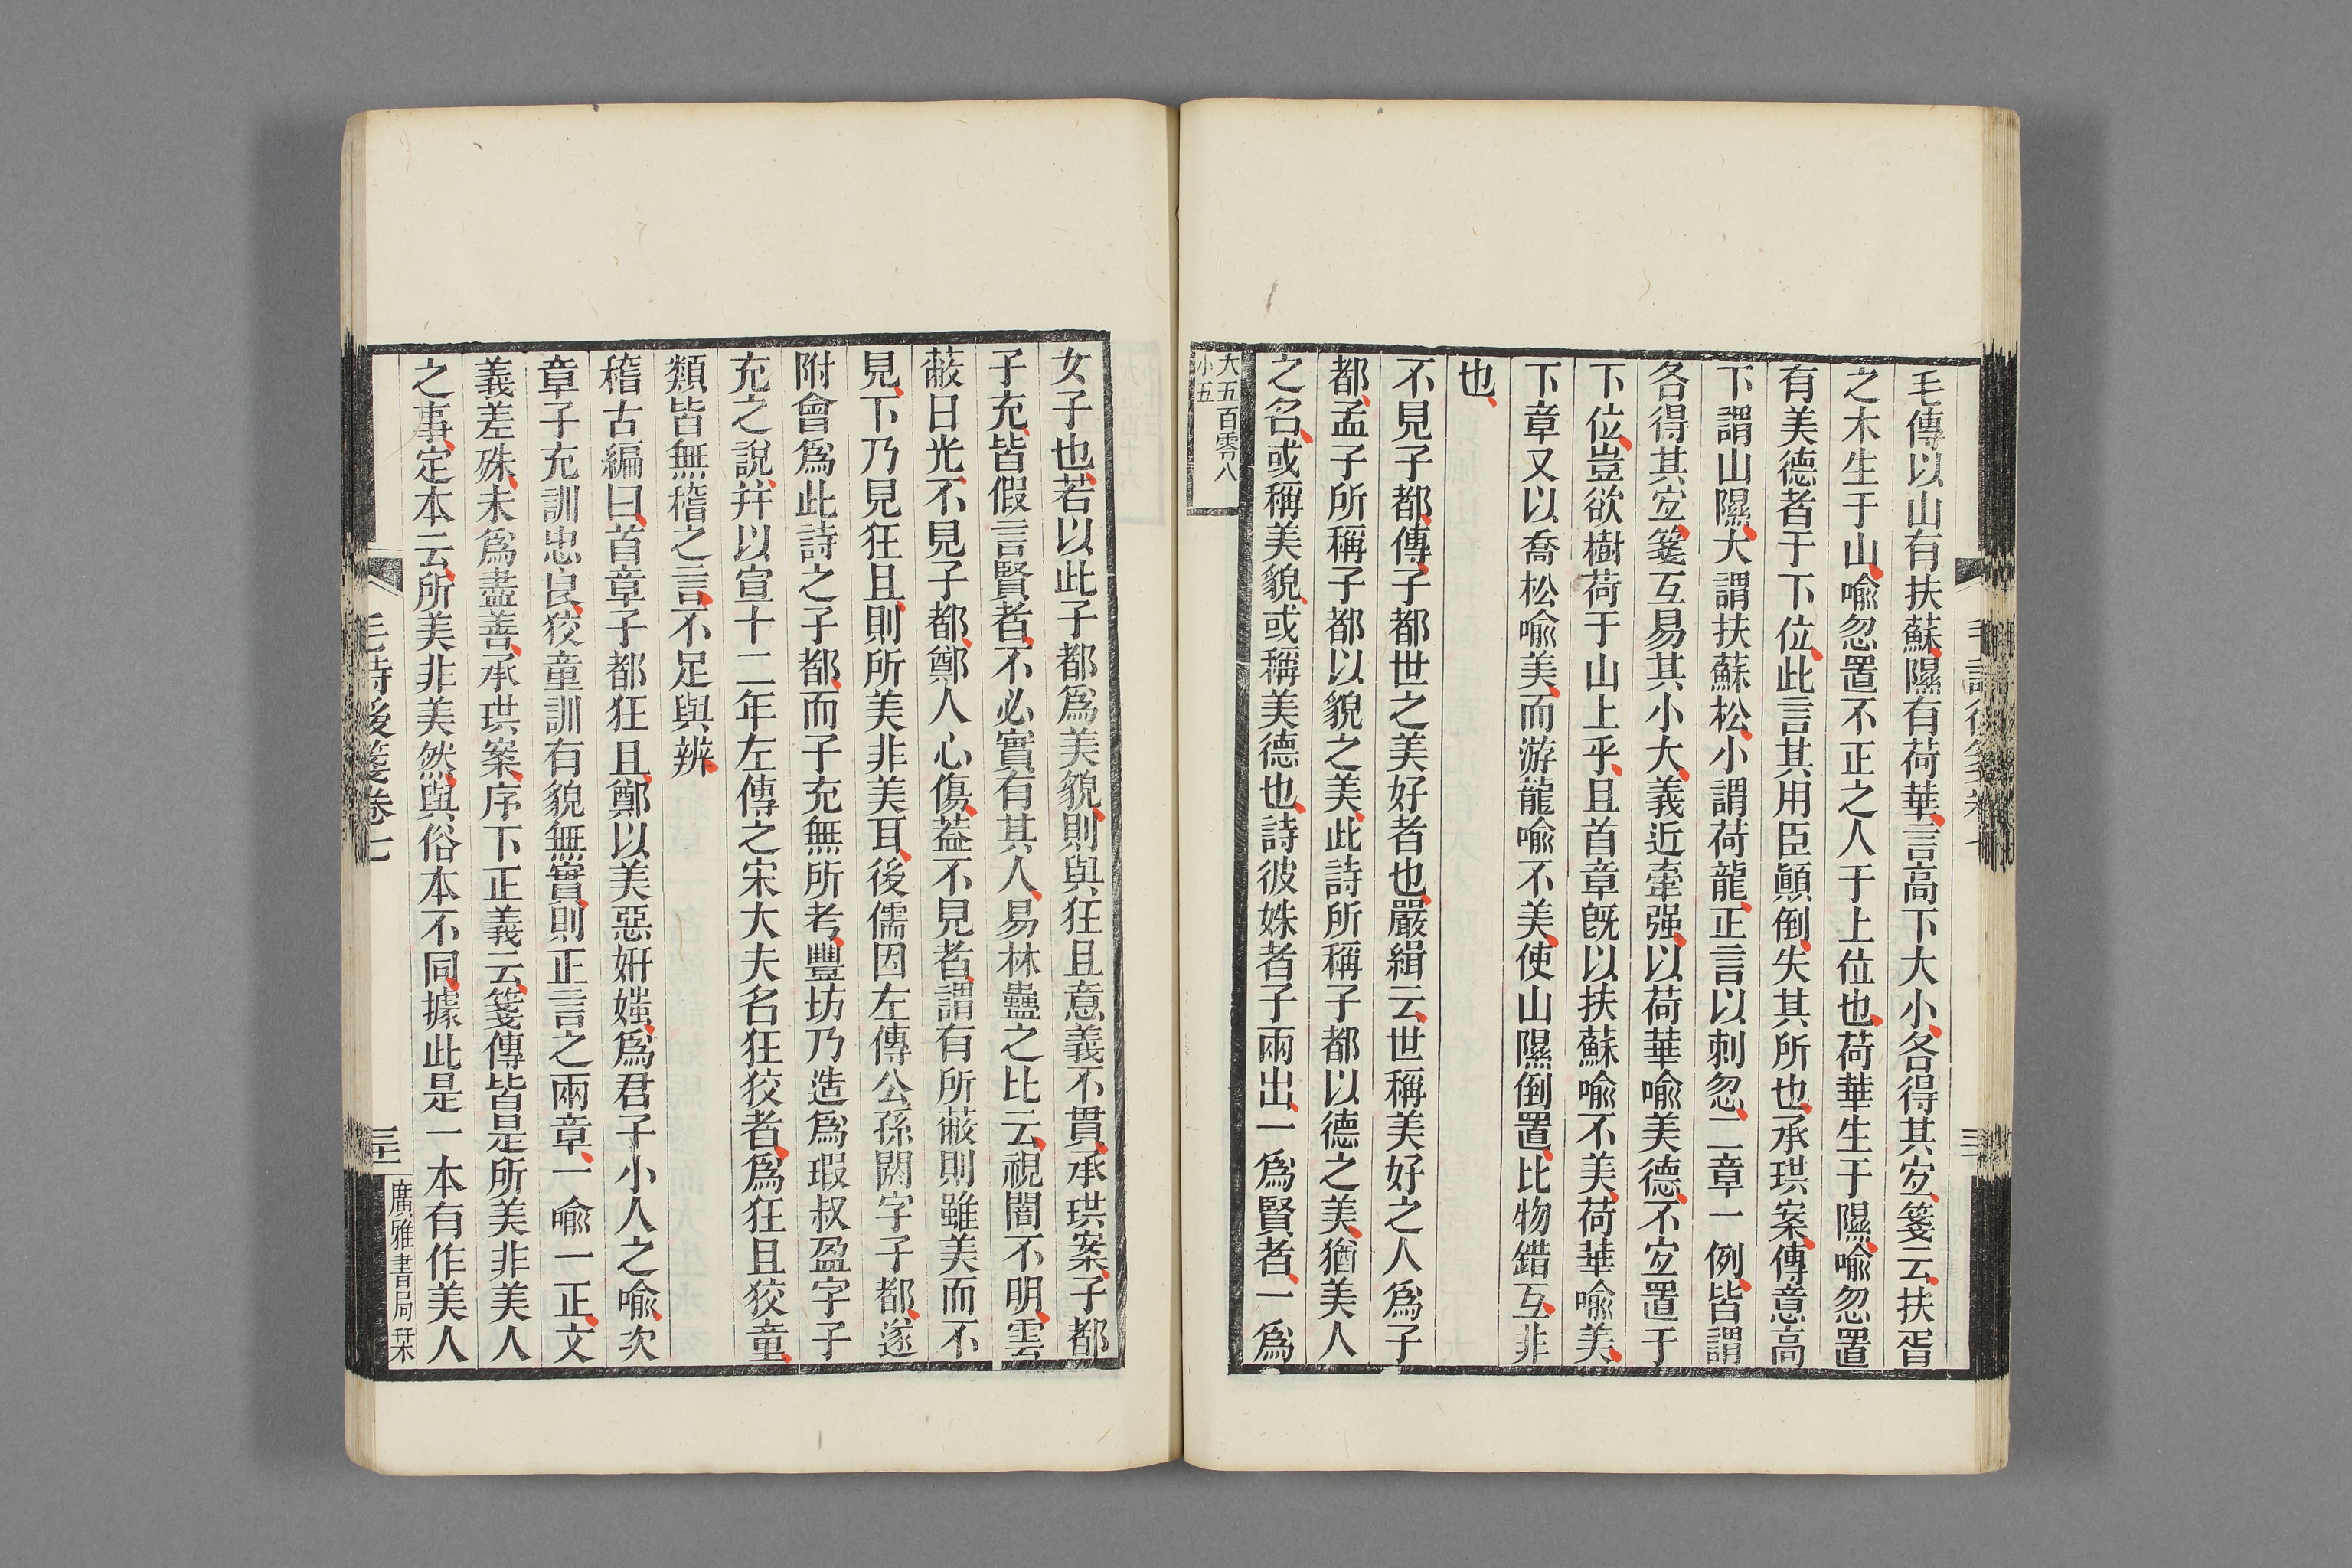 毛傳以山有扶蘇隰有荷華言高下大小各得其宐箋云扶胥
之木生于山喻忽置不正之人于上位也荷華生于隰喻忽置
有美德者于下位此言其用臣顚倒失其所也承珙案傳意高
下謂山隰大謂扶蘇松小謂荷龍正言以刺忽二章一例皆謂
各得其宐箋互易其小大義近牽强以荷華喻美德不宐置于
下位豈欲樹荷于山上乎且首章旣以扶蘇喻不美荷華喻美
下章又以喬松喻美而游龍喻不美使山隰倒置比物錯互非
也
不見子都傳子都世之美好者也嚴緝云世稱美好之人爲子
都孟子所稱子都以貌之美此詩所稱子都以德之美猶美人
之名或稱美貌或稱美德也詩彼姝者子兩出一爲賢者一爲
大五百零八
小五
女子也若以此子都爲美貌則與狂且意義不貫承珙案子都
子充皆假言賢者不必實有其人易林蠱之比云視闇不明雲
蔽日光不見子都鄭人心傷葢不見者謂有所蔽則雖美而不
見下乃見狂且則所美非美耳後儒因左傳公孫閼字子都遂
附會爲此詩之子都而子充無所考豐坊乃造爲瑕叔盈字子
充之說并以宣十二年左傳之宋大夫名狂狡者爲狂且狡童
類皆無稽之言不足與辨
稽古編曰首章子都狂且鄭以美惡姸媸爲君子小人之喻次
章子充訓忠良狡童訓有貌無實則正言之兩章一喻一正文
義差殊未爲盡善承珙案序下正義云箋傳皆是所美非美人
之事定本云所美非美然與俗本不同據此是一本有作美人
毛詩後箋卷七
三十一
廣雅書局栞